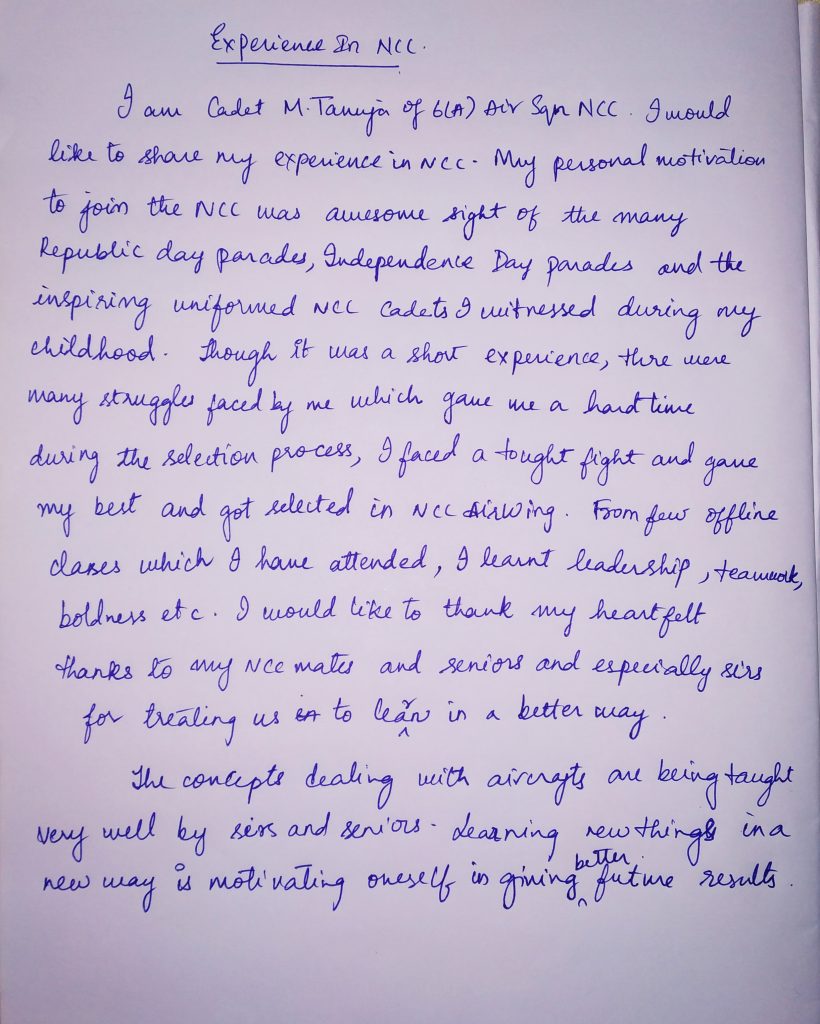 Experience In NCC.
I am Cadet M.Tanuja of 6(A) Air Sqn NCC. I would
like to share my experience in NCC. My personal motivation
to join the NCC was awesome sight of the many
Republic day parades, Independence Day parades and the
inspiring uniformed NCC Cadets I witnessed during my
childhood. Though it was a short experience, thre were
many struggles faced by me which gave me a hard time
during the selection process, I faced a tought fight and gave
my best and got selected in NCC AirWing. From few offline
classes which I have attended, I learnt leadership, teamwork,
boldness etc. I would like to thank my heartfelt
thanks to my NCC mates and seniors and especially sirs
for treating us to learn in a better way.
The concepts dealing with aircrafts are being taught
very well by sirs and seniors. Learning new things in a
new way is motivating oneself in giving better future results.